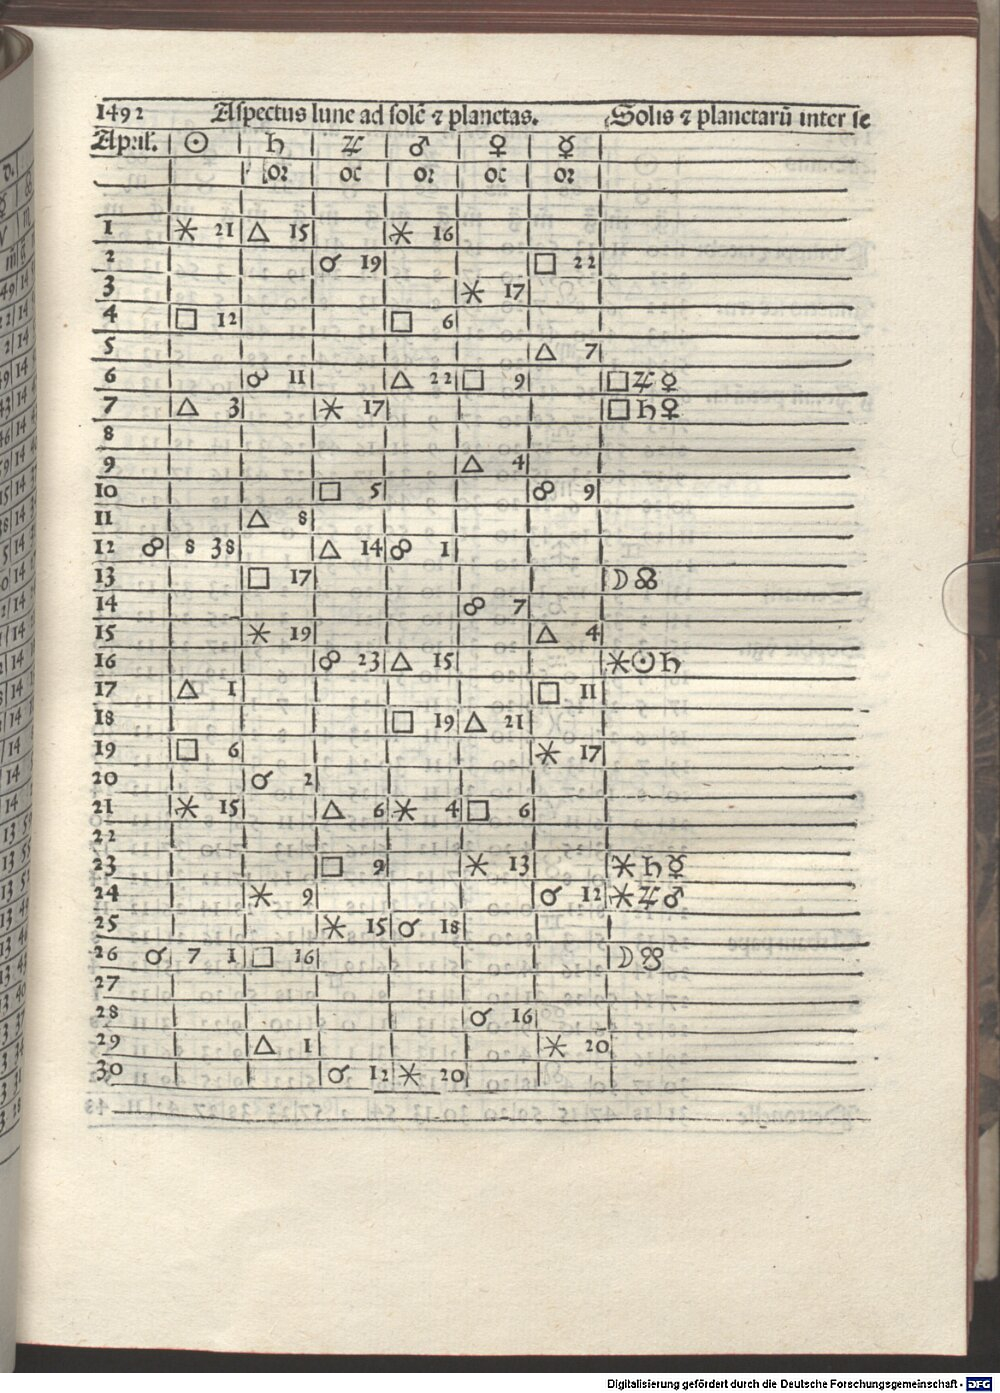 1492 Aspectus lune ad solē ⁊ planetas. Solis ⁊ planetarū inter se
April. ☉ ♄ ♃ ♂ ♀ ☿
oꝛ oc oꝛ oc oꝛ
1 ⚹ 21 △ 15 ⚹ 16
2 ☌ 19 □ 22
3 ⚹ 17
4 □ 12 □ 6
5 △ 7
6 ☍ 11 △ 22 □ 9 □ ♃ ☿
7 △ 3 ⚹ 17 □ ♄ ♀
8
9 △ 4
10 □ 5 ☍ 9
11 △ 8
12 ☍ 8 38 △ 14 ☍ 1
13 □ 17 ☽ ☊
14 ☍ 7
15 ⚹ 19 △ 4
16 ☍ 23 △ 15 ⚹ ☉ ♄
17 △ 1 □ 11
18 □ 19 △ 21
19 □ 6 ⚹ 17
20 ☌ 2
21 ⚹ 15 △ 6 ⚹ 4 □ 6
22
23 □ 9 ⚹ 13 ⚹ ♄ ☿
24 ⚹ 9 ☌ 12 ⚹ ♃ ♂
25 ⚹ 15 ☌ 18
26 ☌ 7 1 □ 16 ☽ ☋
27
28 ☌ 16
29 △ 1 ⚹ 20
30 ☌ 12 ⚹ 20
Digitalisierung gefördert durch die Deutsche Forschungsgemeinschaft - DFG